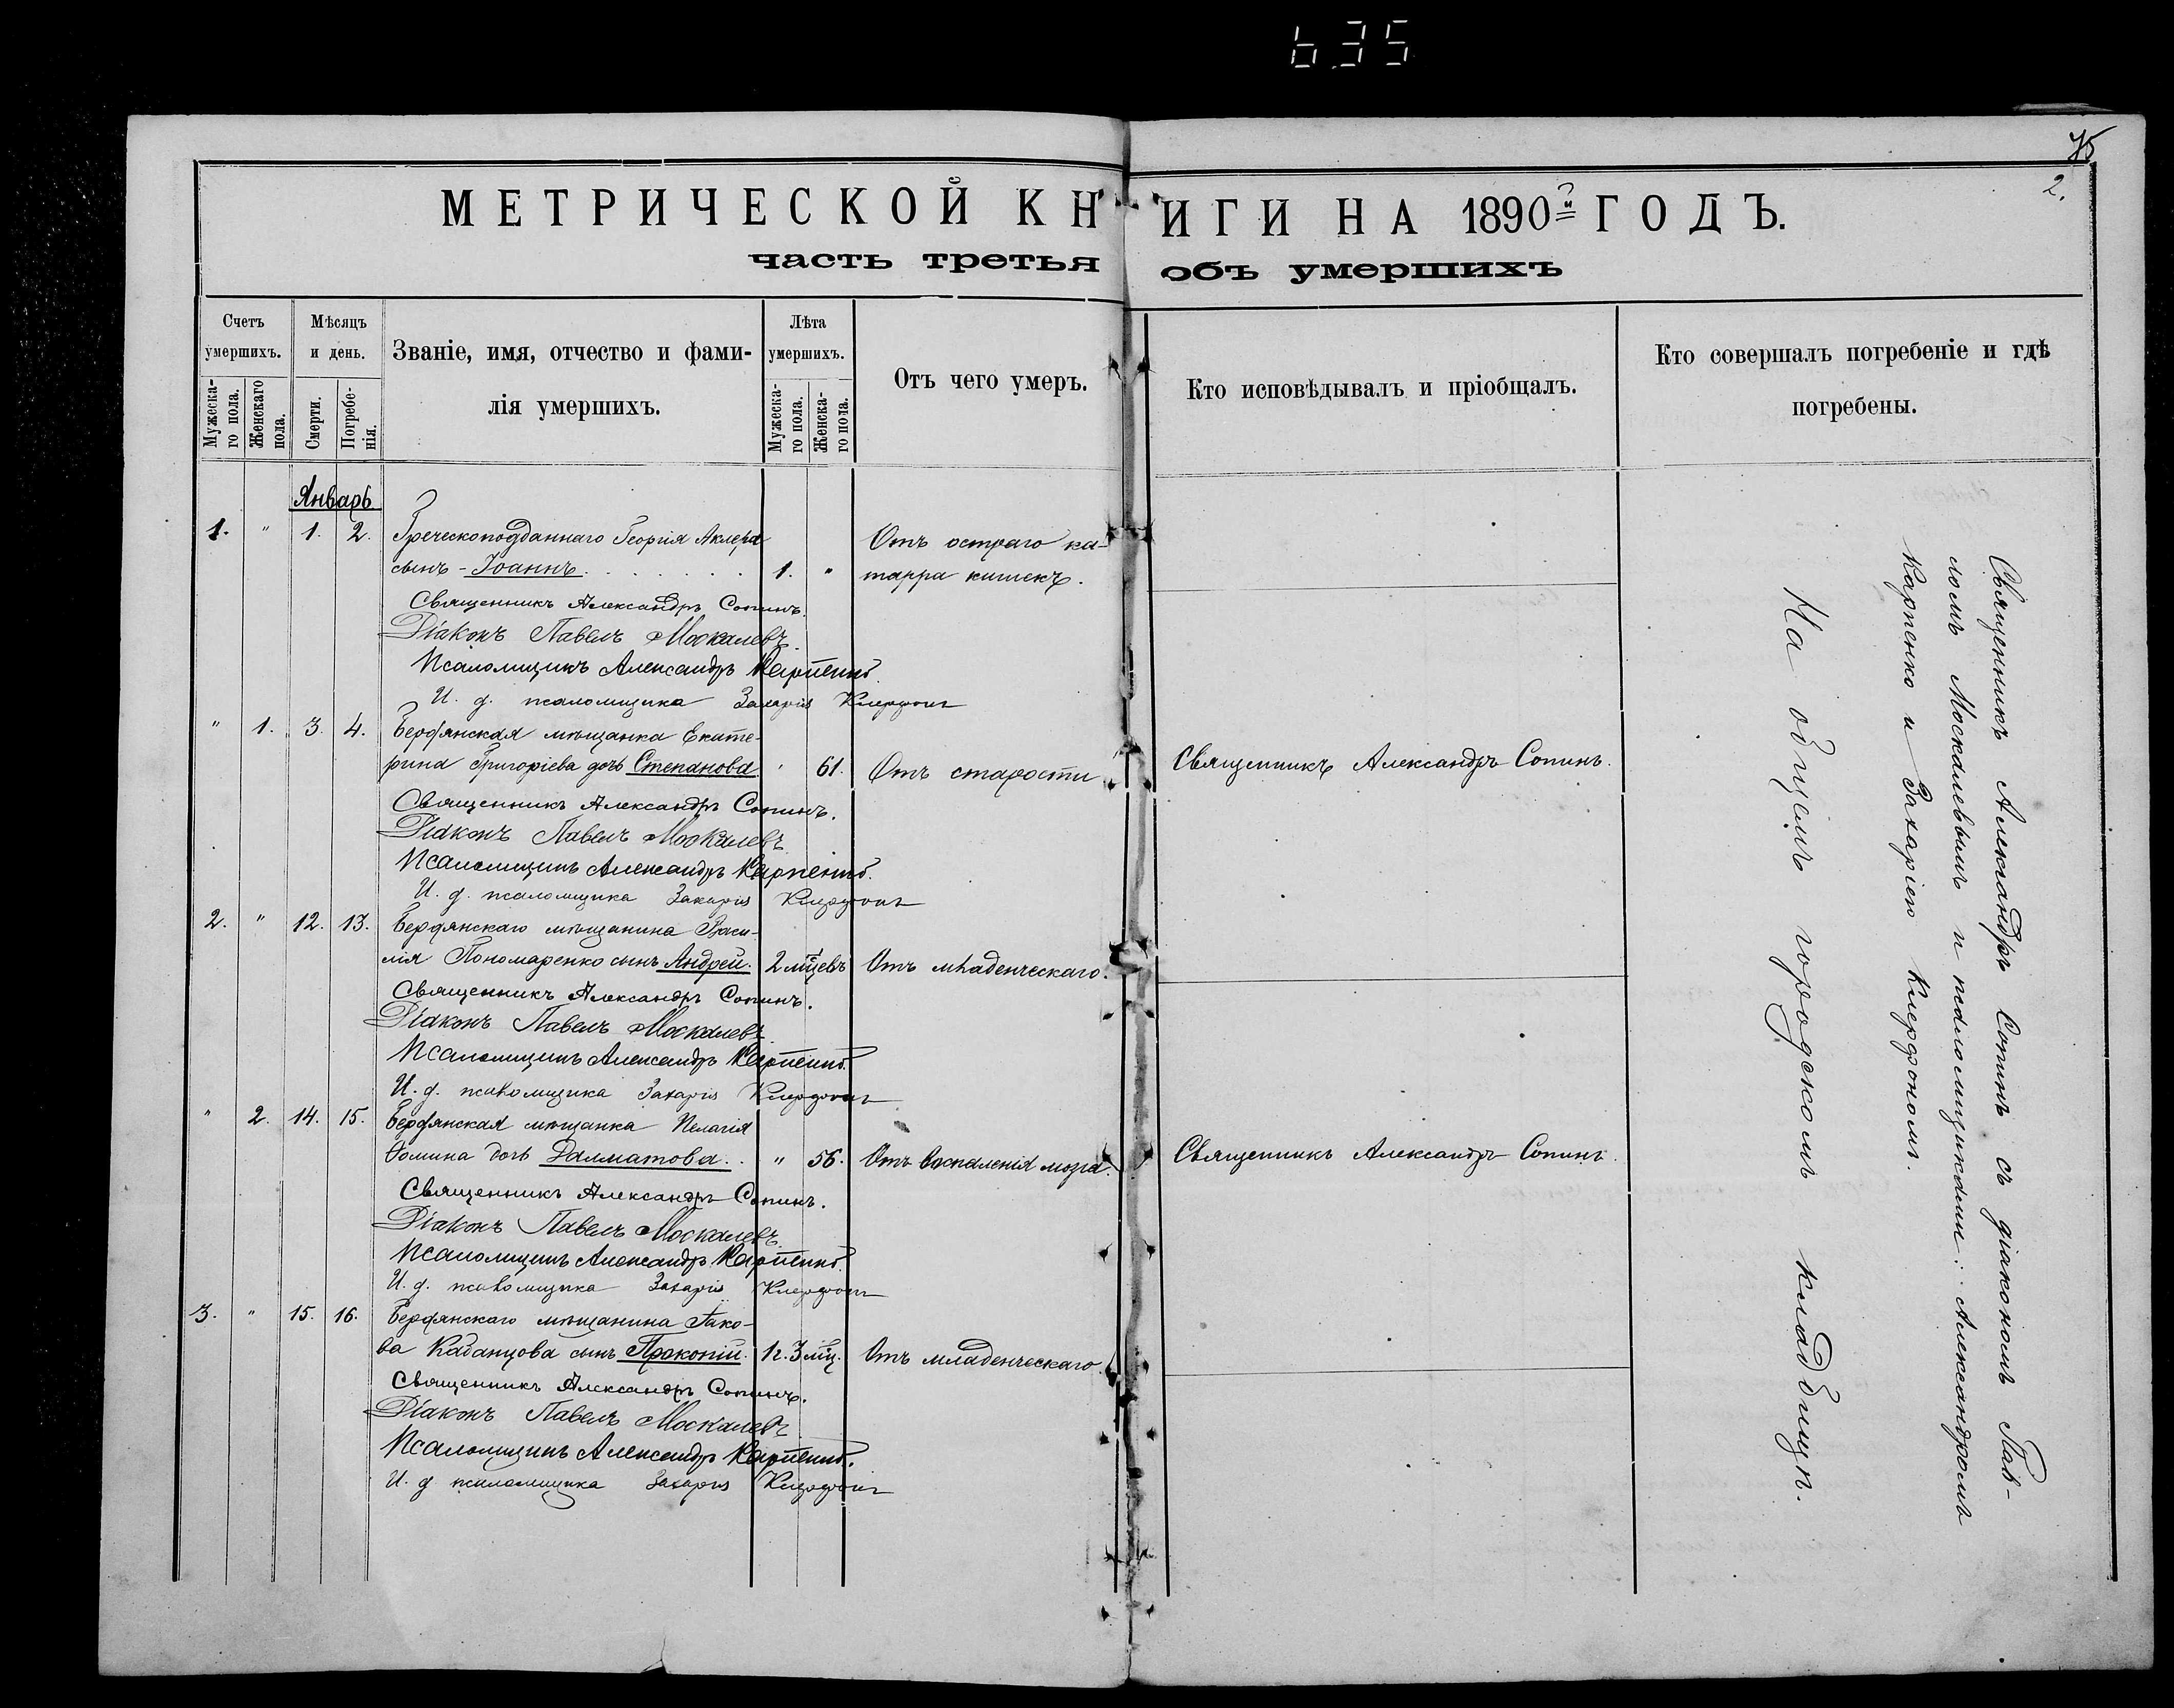 635
75
2.
МЕТРИЧЕСКОЙ КНИГИ НА 1890й ГОДЪ.
часть третья объ умершихъ
Счетъ умершихъ.
Мужескаго пола.
Женскаго пола.
Мѣсяцъ и день.
Смерти.
Погребенія.
Званіе, имя, отчество и фамилія умершихъ.
Лѣта умершихъ.
Мужескаго пола.
Женскаго пола.
Отъ чего умеръ.
Кто исповѣдывалъ и пріобщалъ.
Кто совершалъ погребеніе и гдѣ погребены.
Январь
1. " 1. 2. Греческоподданнаго Георгія Отъ остраго ка-
сынъ - Іоаннъ 1. " тарра кишекъ.
Священникъ Александръ Сопинъ.
Діаконъ Павелъ Москалевъ.
Псаломщикъ Александръ Карпенко.
И. д. псаломщика Захарія
" 1. 3. 4. Бердянская мѣщанка Екате-
рина Григоріева дочь Степанова " 61. Отъ старости Священникъ Александръ Сопинъ.
Священникъ Александръ Сопинъ.
Діаконъ Павелъ Москалевъ
Псаломщикъ Александръ Карпенко.
И. д. псаломщика Захарія
2. " 12. 13. Бердянскаго мѣщанина Васи-
лія Пономаренко сынъ Андрей. 2 мѣцевъ Отъ младенческаго.
Священникъ Александръ Сопинъ.
Діаконъ Павелъ Москалевъ.
Псаломщикъ Александръ Карпенко.
И. д. псаломщика Захарія
" 2. 14. 15. Бердянская мѣщанка Пелагія
Ѳомина дочь Далматова. " 56. Отъ воспаленія мозга. Священникъ Александръ Сопинъ.
Священникъ Александръ Сопинъ.
Діаконъ Павелъ Москалевъ.
Псаломщикъ Александръ Карпенко.
И. д. псаломщика Захарія
3. " 15. 16. Бердянскаго мѣщанина Іако-
ва Кабанцова сынъ Прокопій. 1 г. 3 мц. Отъ младенческаго.
Священникъ Александръ Сопинъ.
Діаконъ Павелъ Москалевъ
Псаломщикъ Александръ Карпенко.
И. д. псаломщика Захарія
Священникъ Александръ Сопинъ съ діакономъ Пав-
ломъ Москалевымъ и псаломщиками: Александромъ
Карпенко и Захаріею
На общемъ городскомъ кладбищѣ.